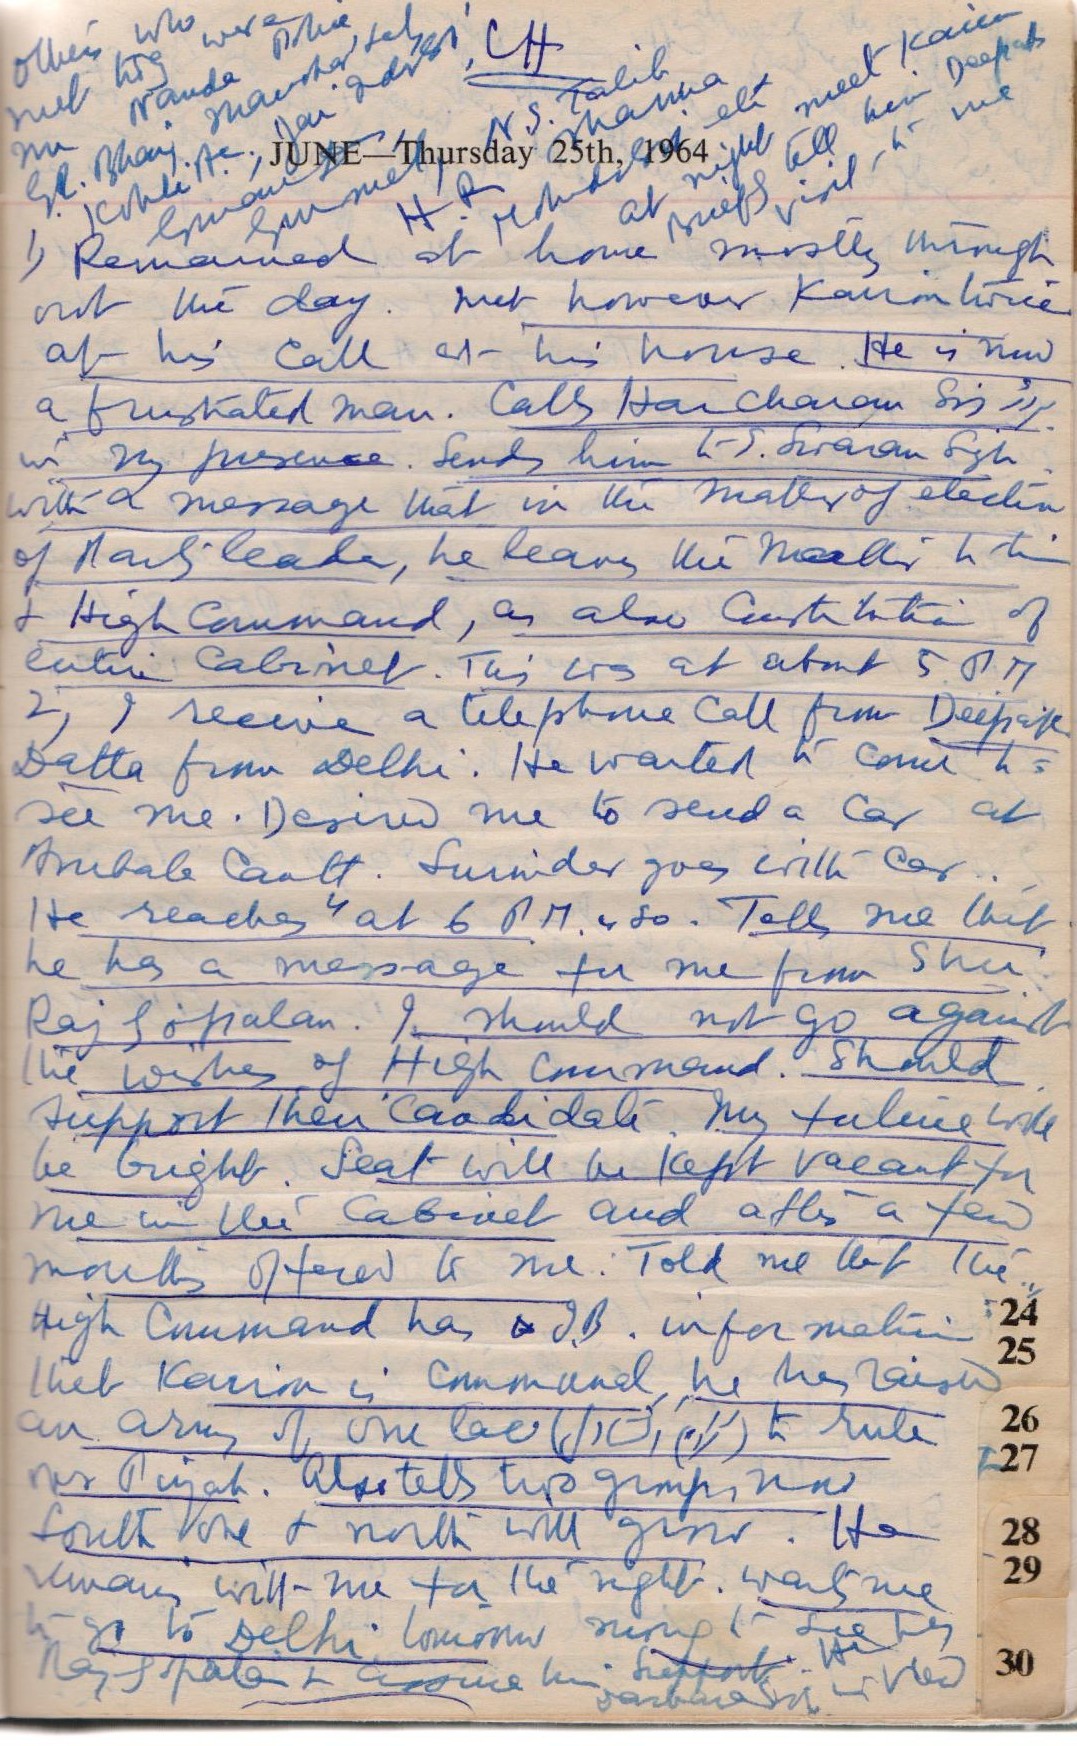 others who were
met
Nanda
CH
N.S. Talib
H.R.
at night meet Kairon
tell him Deepak's
visit to me
JUNE—Thursday 25th, 1964
1) Remained at home mostly through
out the day. met however Kairon twice
at his call at his house. He is now
a frustrated man. Calls Harcharan Singh
in my presence. Sends him to S. Swaran Sigh
with a message that in the matter of election
of Party leader, he leaves the matter to him
& High Command, as also Constitution of
entire Cabinet. This was at about 5 P.M
2) I receive a telephone call from Deepak
Datta from Delhi. He wanted to come to
see me. Desired me to send a car at
Ambala Cantt. Surinder goes with car.
He reaches at 6 P.M. or so. Tells me that
he has a message for me from Shri
Raj Gopalan. I should not go against
the wishes of High Command. Should
support their Candidate. My future will
be bright. Seat will be kept vacant for
me in the Cabinet and after a few
months offered to me. Told me that the
High Command has I.B. information
that Kairon is communal, he has raised
an army of one lac to rule
over Punjab. Also tells two groups now
South one & north will grow. He
remains with me for the night. wants me
to go to Delhi tomorrow morning to see
Raj Gopalan & assure him support. He
24
25
26
27
28
29
30